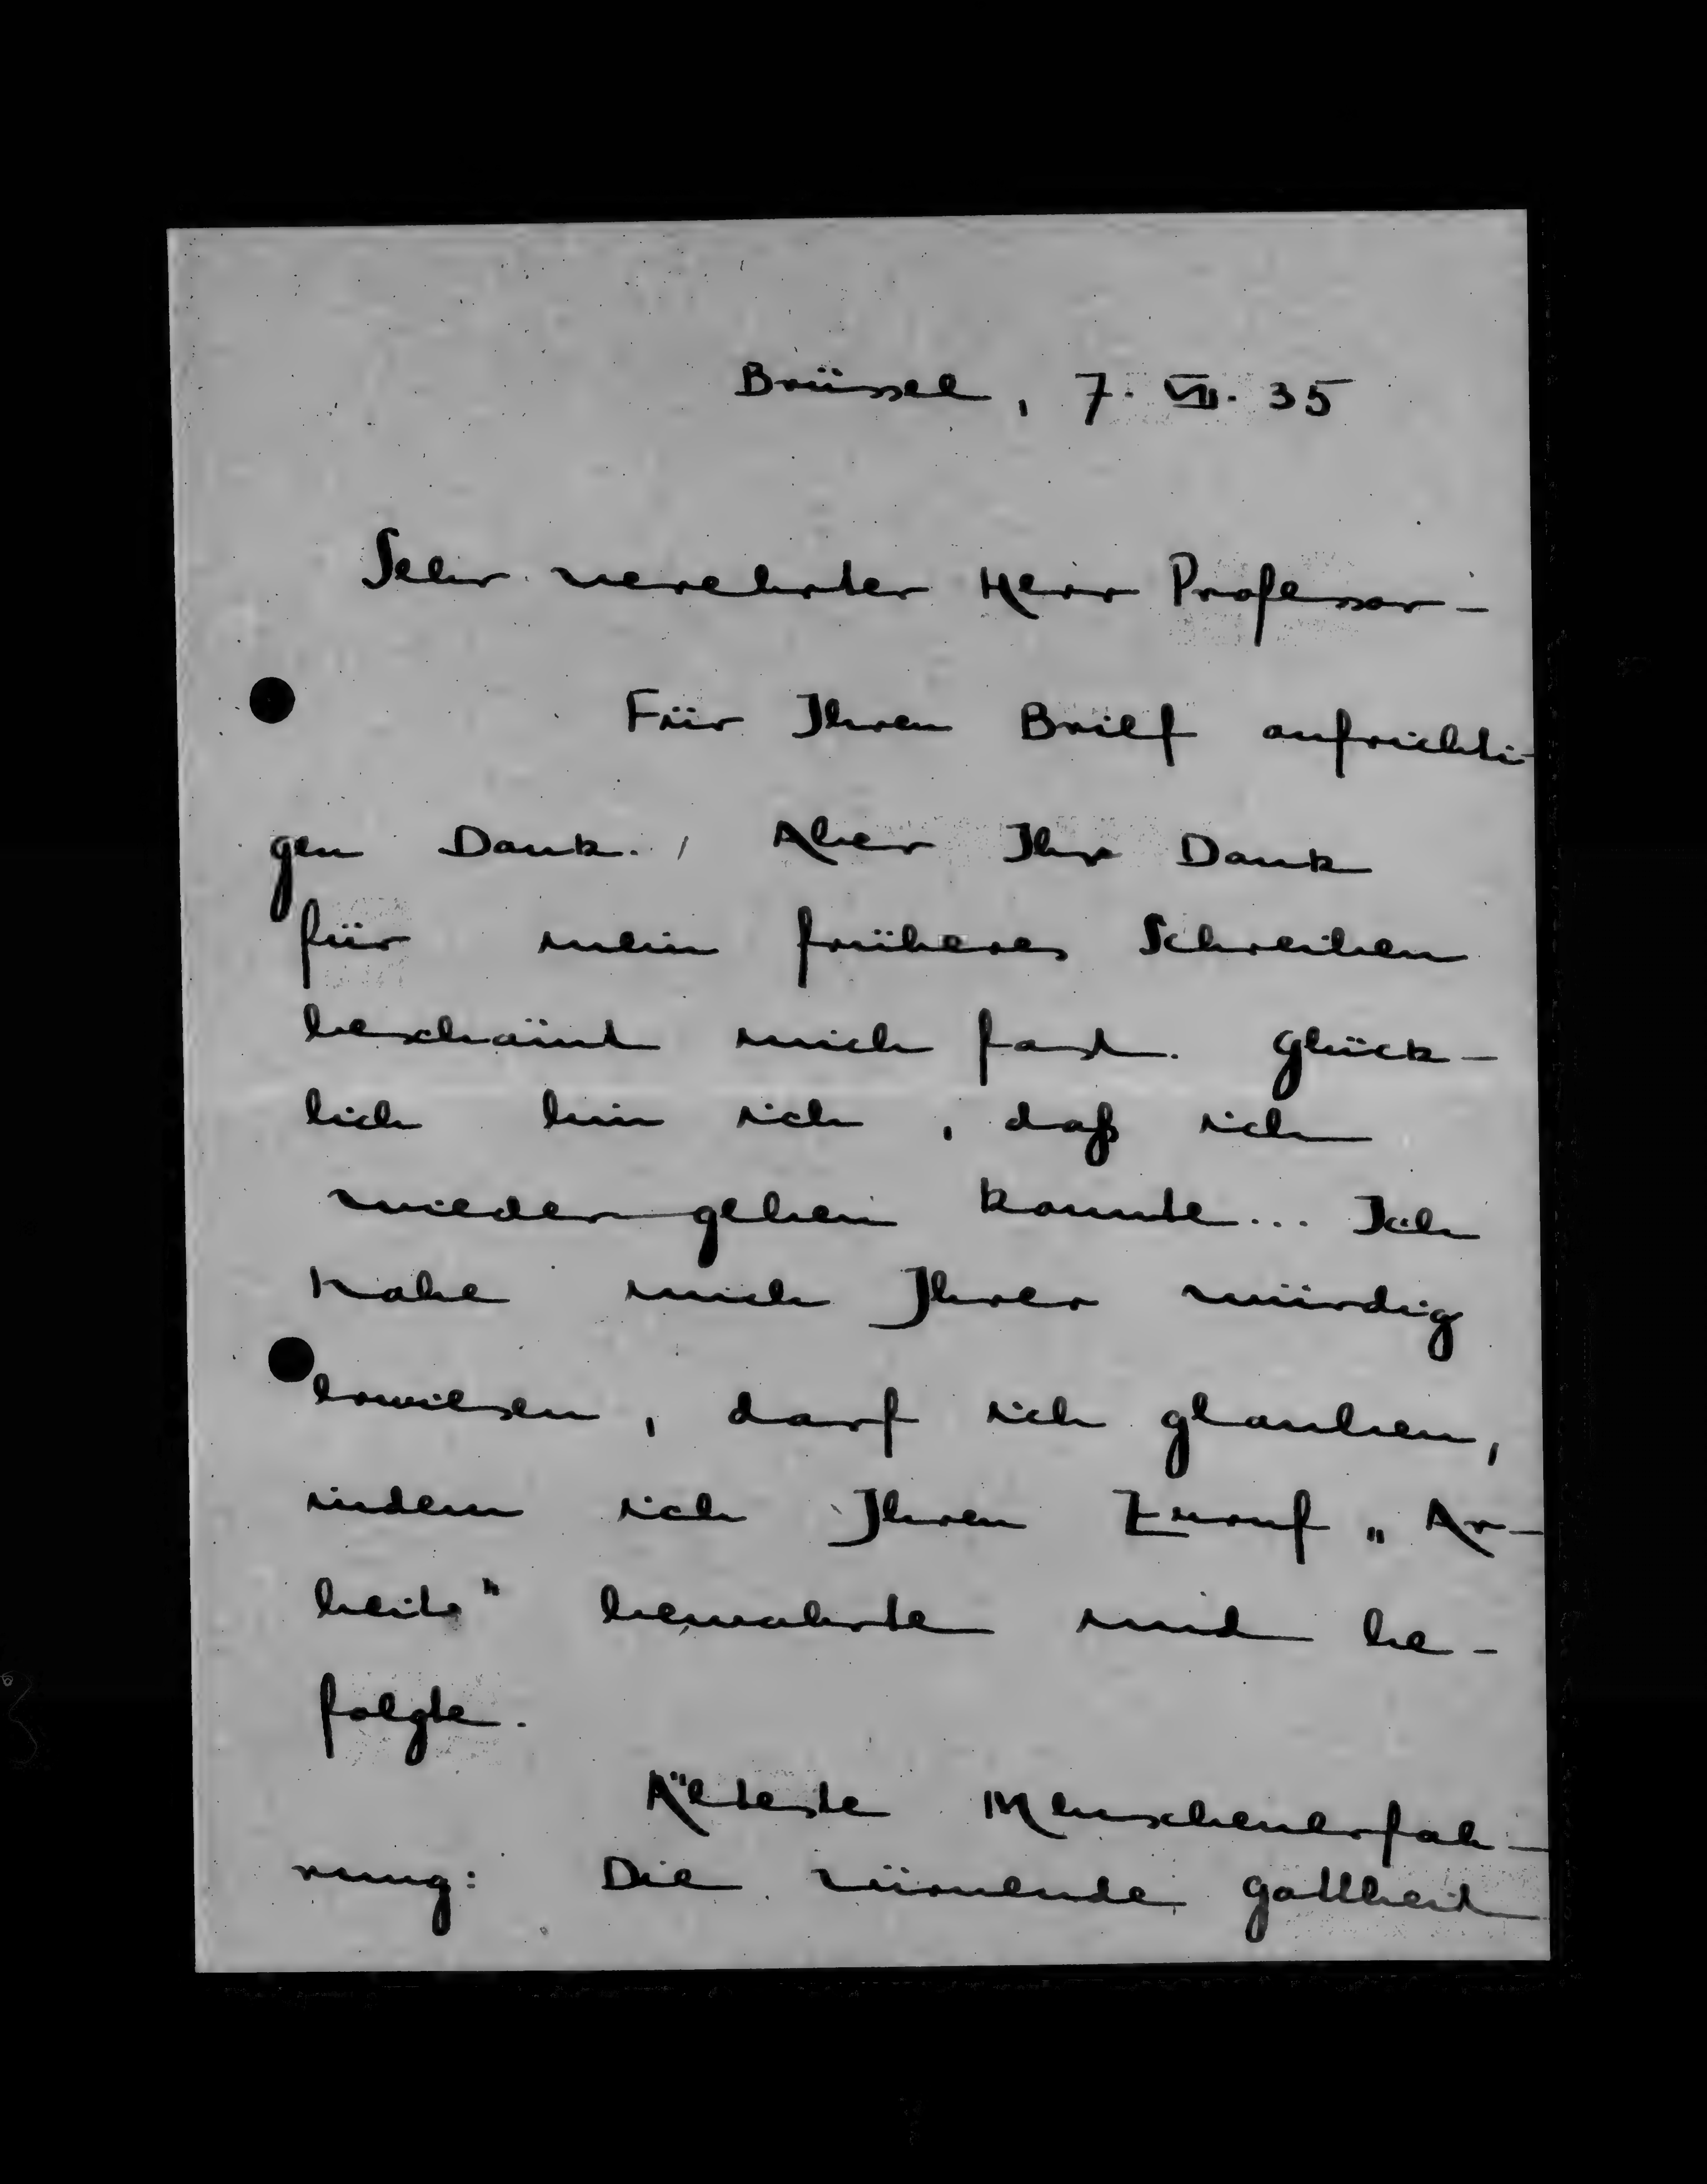 Brüssel, 7. VII. 35
Sehr verehrter Herr Professor –
Für Ihren Brief aufrichti-
gen Dank. Aber Ihr Dank
für mein früheres Schreiben
beschämt mich fast. Glück-
lich bin ich, daß ich
wiedergeben konnte... Ich
habe mich Ihrer würdig
erwiesen, darf ich glauben,
indem ich Ihren Zuruf „Ar-
beite" bewahrte und be-
folgte.
Älteste Menschenerfah-
rung: Die zürnende Gottheit